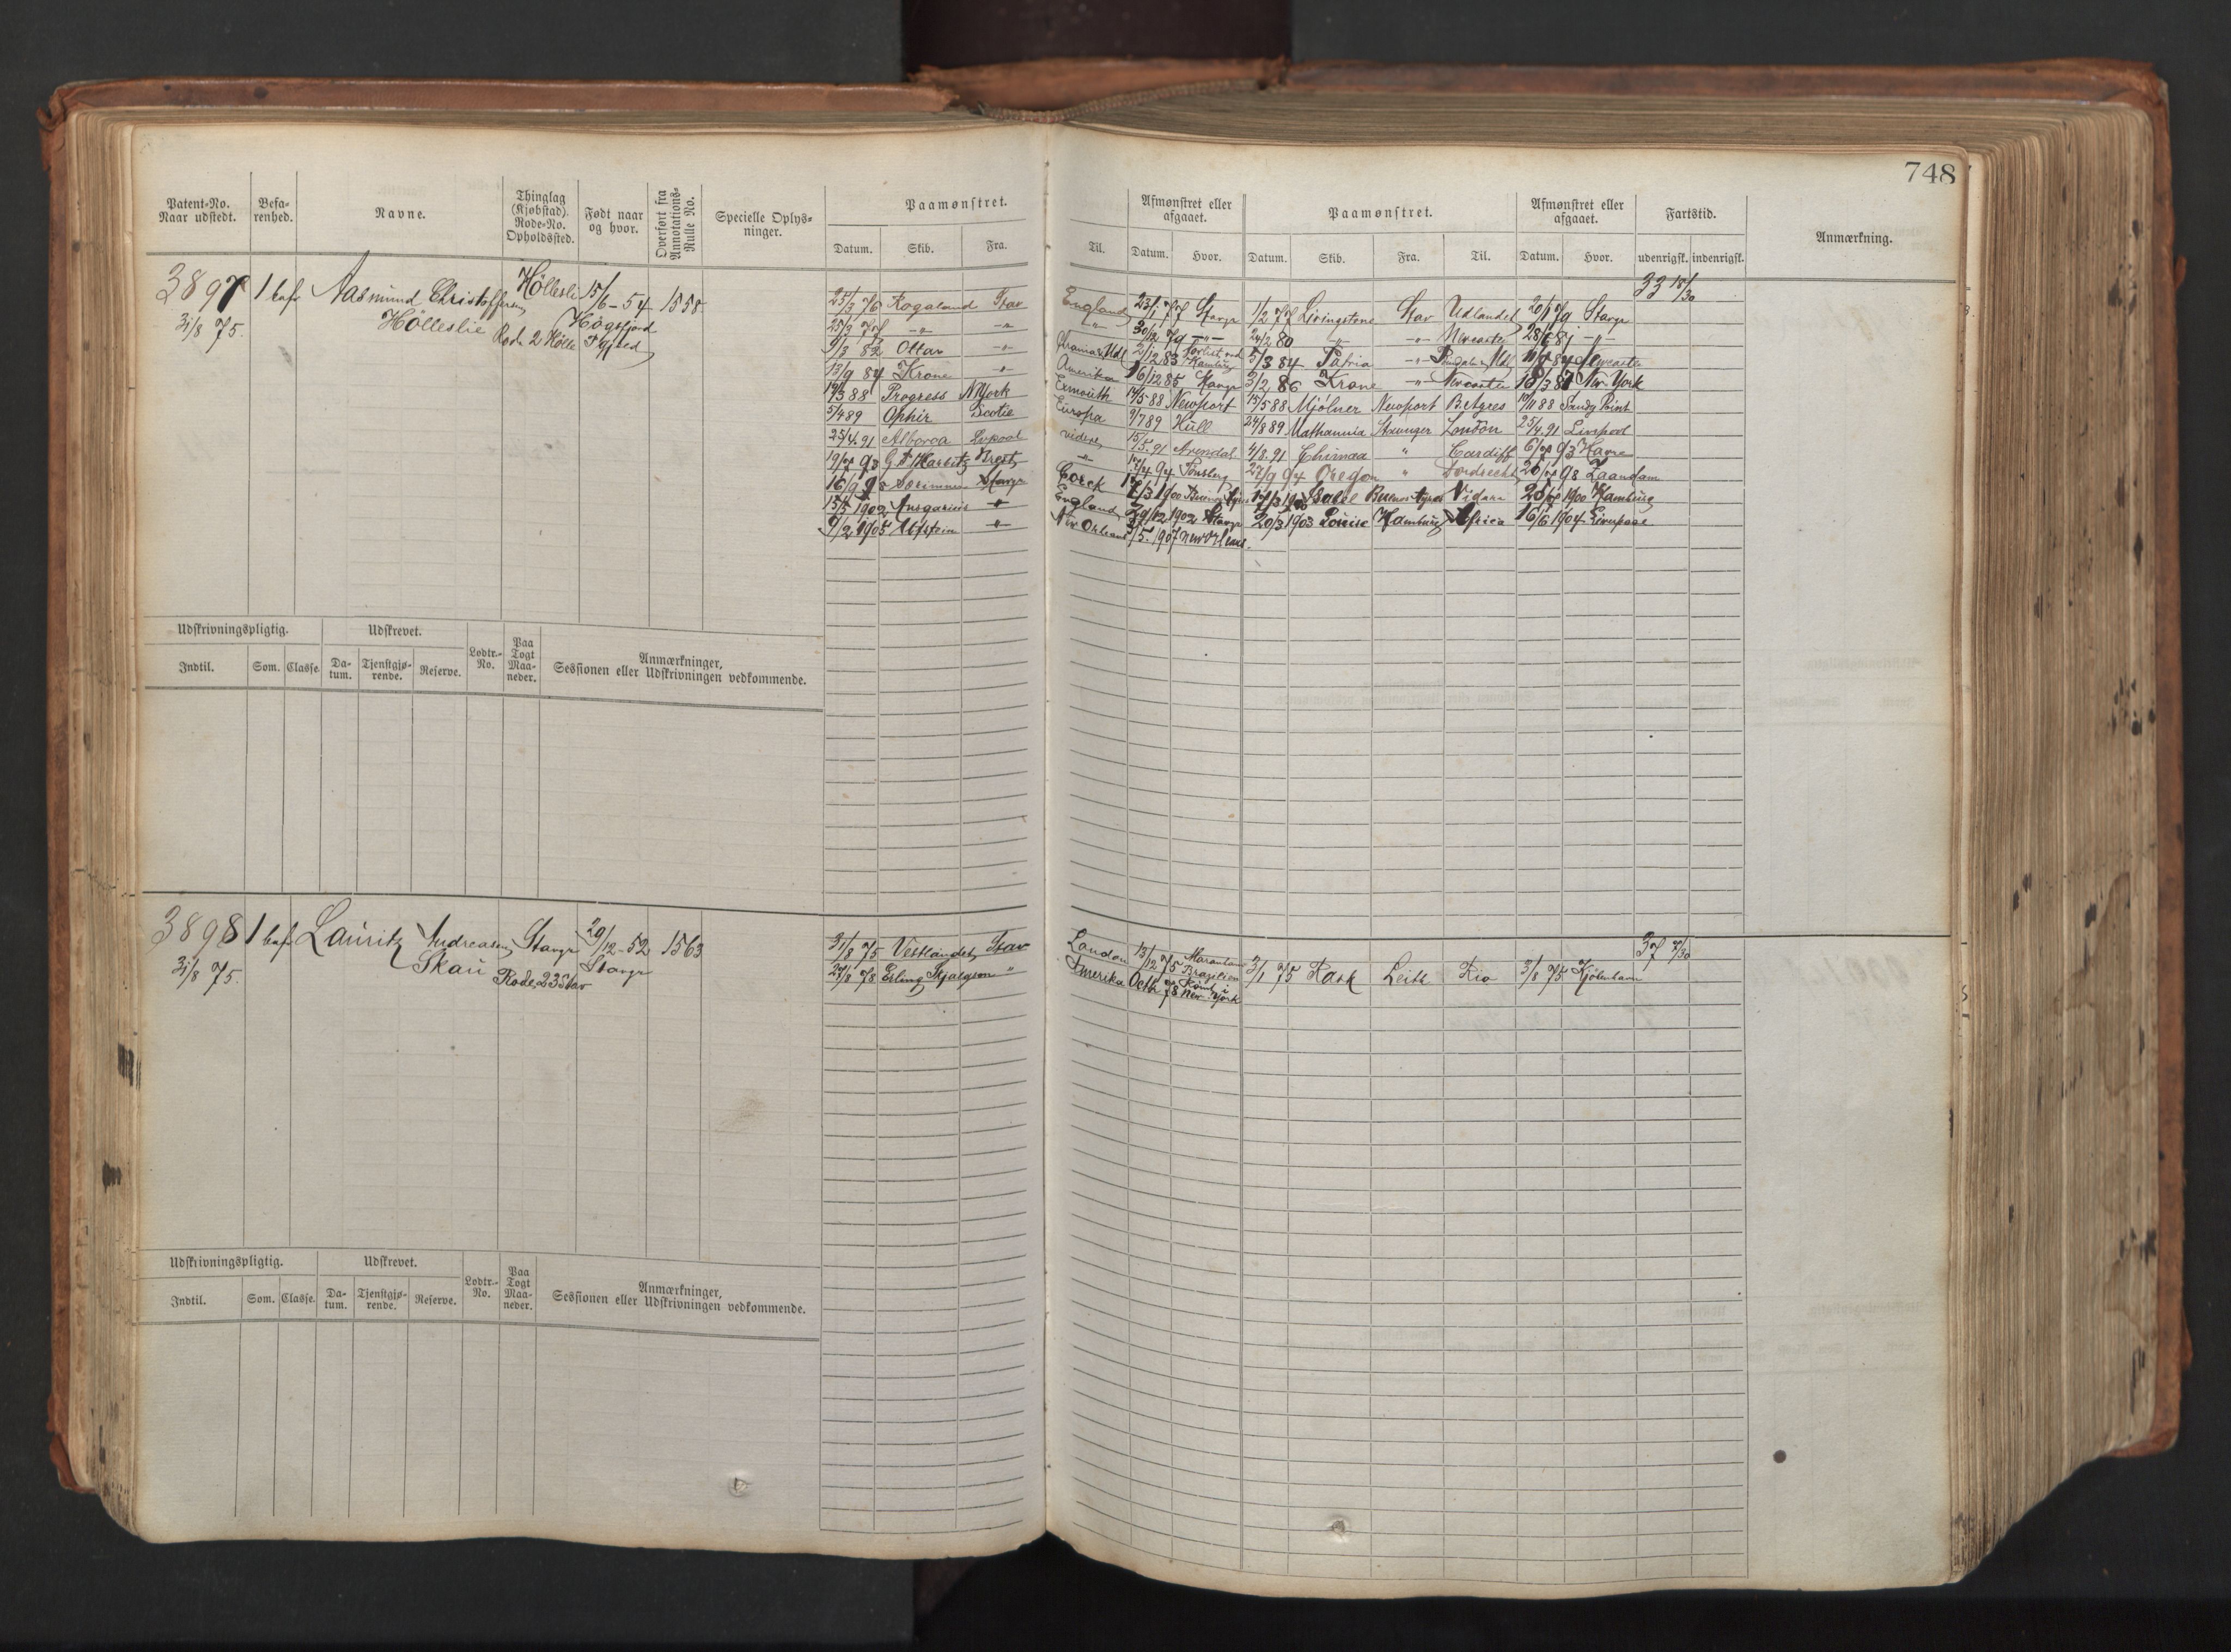 748
Patent-No. Naar udstedt. Befa-renhed. Navne. Thinglag (Kjøbstad). Rode-No. Opholdssted. Født naar og hvor. Overført fra Annotations-Rulle No. Specielle Oplys-ninger. Paamønstret. Afmønstret eller afgaaet. Paamønstret. Afmønstret eller afgaaet. Fartstid. Anmærkning.
Datum. Skib. Fra. Til. Datum. Hvor. Datum. Skib. Fra. Til. Datum. Hvor. udenrigsk. indenrigsk.
3897 1 bef Aasmund Christoffersen Hölleslie Hölleslie 15/6-54 1558 33 18/30
31/8 75. Högsfjord
Rode 2 Hölle
25/3 76 Rogaland Stav England 23/1 77 Stavgr 1/2 77 Livingstone Stav Udlandet 20/1 79 Stavgr
25/2 79 -"- -"- -"- 30/12 79 -"- 24/2 80 -"- -"- Newcastle 28/6 81 -"-
9/3 82 Ottar -"- 2/12 83 Forlist ved Hamburg 5/3 84 Patria -"- 84 Newcastle
13/9 84 Krone -"- Amerika 16/12 85 Stavgr 3/2 86 Krone -"- Newcastle 18/3 87 New York
19/3 88 Progress N York Exmouth 14/5 88 Newport 15/5 88 Mjölner Newport B. Ayres 10/11 88 Sandy Point
5/4 89 Ophir Scotie Europa 9/7 89 Hull 24/8 89 Stavanger London 25/4 91 Liverpool
25/4. 91 Alboroa Lvpool videre 15/5. 91 Arendal 4/8. 91 Chimaa " Cardiff 6/7 93 Havre
19/7 93 Brest -"- 17/4 94 Tönsberg 27/9 94 Oregon " Dordrecht 20/7 98 Zaandam
16/9 98 Stavgr Cork 17/3 1900 Buenos Ayres 17/3 1900 Buenos Ayres Vidare 25/7 1900 Hamburg
15/5 1902 Ansgarius -"- England 29/12 1902 Stavgr 20/3 1903 Louise Hamburg Africa 16/6 1904 Liverpool
9/2 1905 -"- New Orleans /5. 1907 New Orleans.
Udskrivningspligtig. Udskrevet. Lodtr.-No. Paa Togt Maa-neder. Anmærkninger, Sessionen eller Udskrivningen vedkommende.
Indtil. Som. Classe. Da-tum. Tjenstgjø-rende. Reserve.
3898 1 bef Lauritz Andreasen Skau Stavgr 29/12-52 1563 37 7/30
31/8 75. Rode 23 Stav Stavgr
31/8 75 Vestlandet Stav London 13/12 75 Maranham Brazilien 3/1 75 Rask Leith Rio 3/8 75 Kjöbenhavn
29/8 78 Erling Skjalgson " Amerika Octb 78 Römt i New York
Udskrivningspligtig. Udskrevet. Lodtr.-No. Paa Togt Maa-neder. Anmærkninger, Sessionen eller Udskrivningen vedkommende.
Indtil. Som. Classe. Da-tum. Tjenstgjø-rende. Reserve.